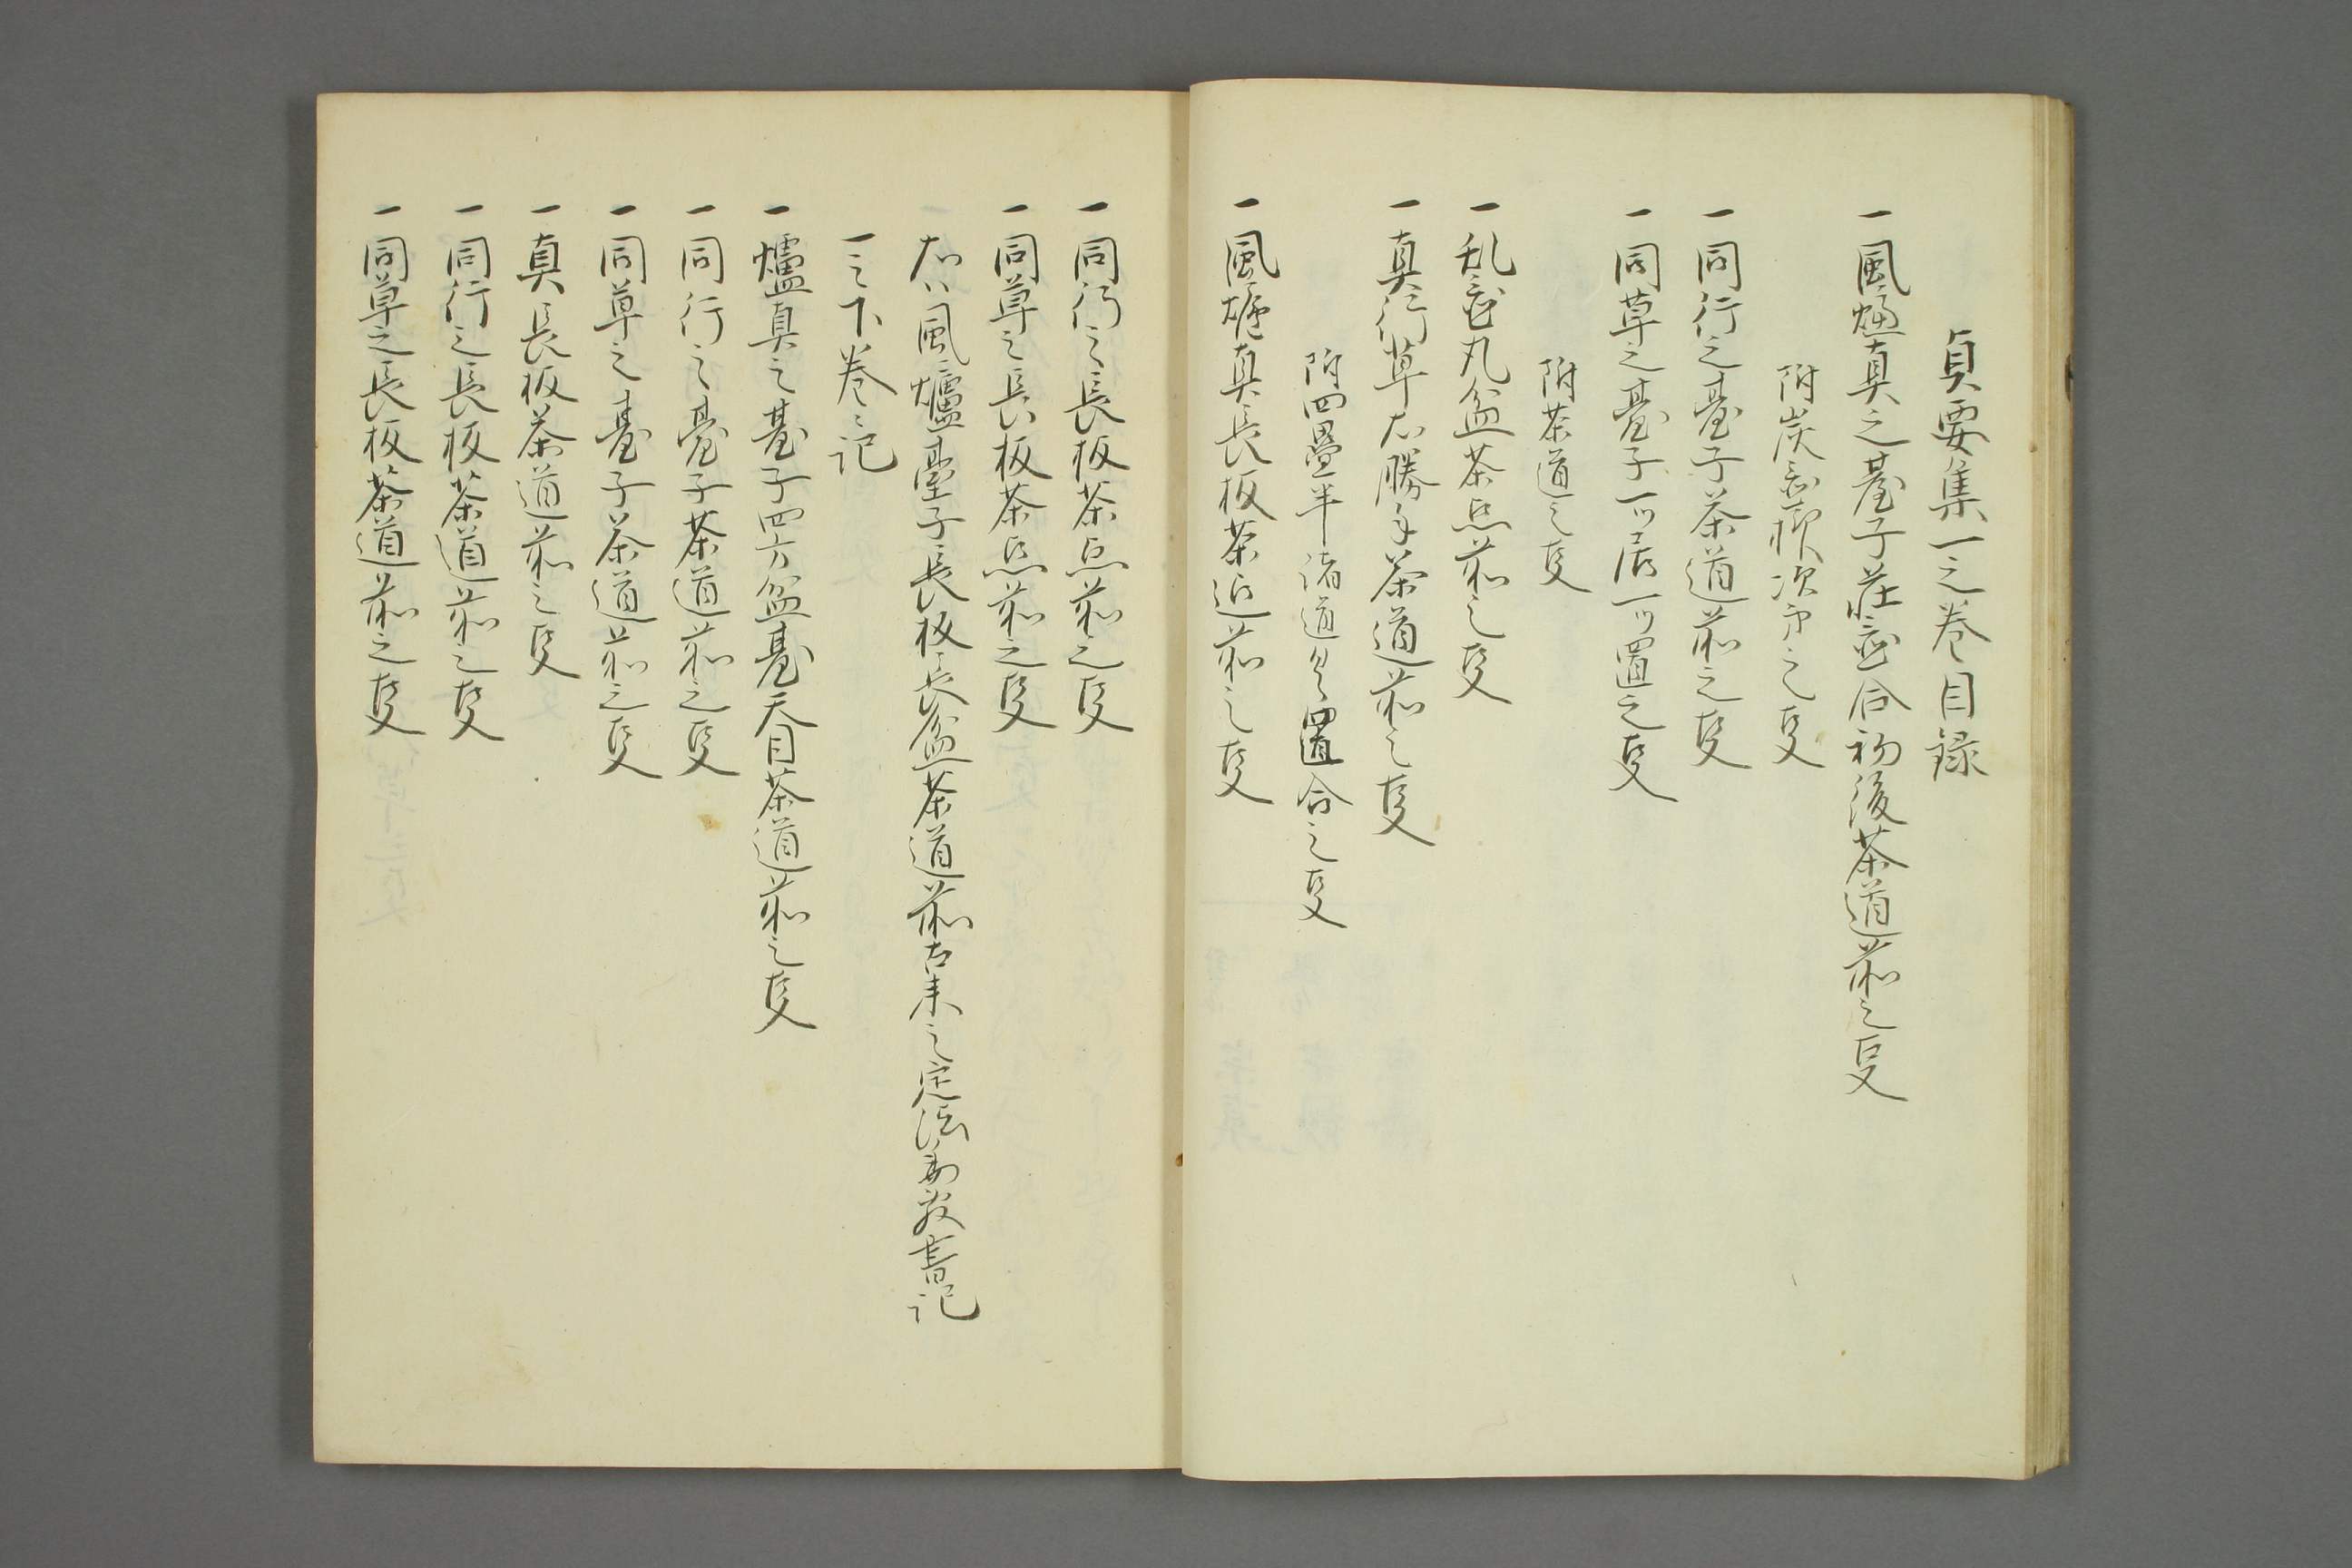 貞要集一之巻目録
一風爐真之臺子荘合初後茶道前之事
附炭次第之事
一同行之臺子茶道前之事
一同草之臺子一ツ居一ツ置之事
附茶道之事
一乱丸盆茶点前之事
一真行草右勝手茶道前之事
附四疊半諸道具置合之事
一風爐真長板茶道前之事
一同行之長板茶点前之事
一同草之長板茶点前之事
右ハ風爐臺子長板長盆茶道前古来之定法書記
一之下巻之記
一爐真之臺子四方盆臺天目茶道前之事
一同行之臺子茶道前之事
一同草之臺子茶道前之事
一真長板茶道前之事
一同行之長板茶道前之事
一同草之長板茶道前之事